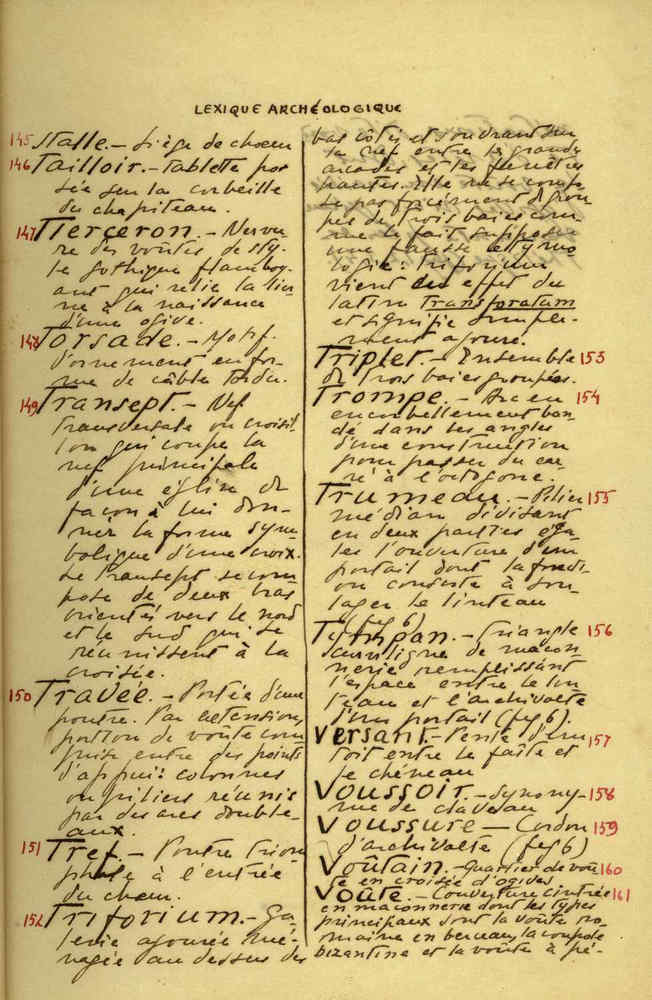 LEXIQUE ARCHÉOLOGIQUE
145 Stalle. – Siège de choeur
146 Tailloir. – Tablette po-
sée sur la corbeille
du chapiteau.
147 Tierceron. – Nervu-
re des voûtes de sty-
le gothique flamboy-
ant qui relie la lier-
ne à la naissance
d'une ogive.
148 Torsade. – Motif
d'ornement en for-
me de câble tordu.
149 Transept. – Nef
transversale ou croisil-
lon qui coupe la
nef principale
d'une église de
façon à lui don-
ner la forme sym-
bolique d'une croix.
Le transept se com-
pose de deux bras
orientés vers le nord
et le sud qui se
réunissent à la
croisée.
150 Travée. – Portée d'une
poutre. Par extension,
portion de voûte com-
prise entre des points
d'appui: colonnes
ou piliers réunis
par des arcs double-
aux.
151 Tref. – Poutre triom-
phale à l'entrée
du choeur.
152 Triforium. – Ga-
lerie ajourée mé-
nagée au dessus des
bas côtés et s'ouvrant sur
la nef entre les grandes
arcades et les fenêtres
hautes. Elle ne se compo-
se pas forcément de grou-
pes de trois baies com-
me le fait supposer
une fausse étymo-
logie: triforium
vient en effet du
latin transforatum
et signifie simple-
ment ajouré.
Triplet. – Ensemble 153
de trois baies groupées.
Trompe. – Arc en 154
encorbellement ban-
dé dans les angles
d'une construction
pour passer du car-
ré à l'octogone.
Trumeau. – Pilier 155
médian divisant
en deux parties éga-
les l'ouverture d'un
portail dont la foncti-
on consiste à sou-
lager le linteau
(fig 6)
Tympan. – Triangle 156
curviligne de maçon-
nerie remplissant
l'espace entre le lin-
teau et l'archivolte
d'un portail (fig 6).
Versant. – Pente d'un 157
toit entre le faîte et
le chéneau
Voussoir. – Synony- 158
me de claveau
Voussure – Cordon 159
d'archivolte (fig 6)
Voûtain. – Quartier de voû- 160
te en croisée d'ogives
Voûte. – Couverture cintrée 161
en maçonnerie dont les types
principaux sont la voûte ro-
maine en berceau, la coupole
bizantine et la voûte à pé-